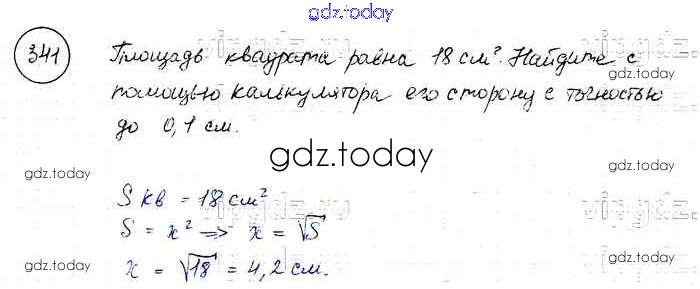 gdz.today
341
Площадь квадрата равна 18 см². Найдите с
помощью калькулятора его сторону с точностью
до 0,1 см.
gdz.today
gdz.today
gdz.today
gdz.today
S кв = 18 см²
S = x² => x = √S
x = √18 = 4,2 см.
gdz.today
gdz.today